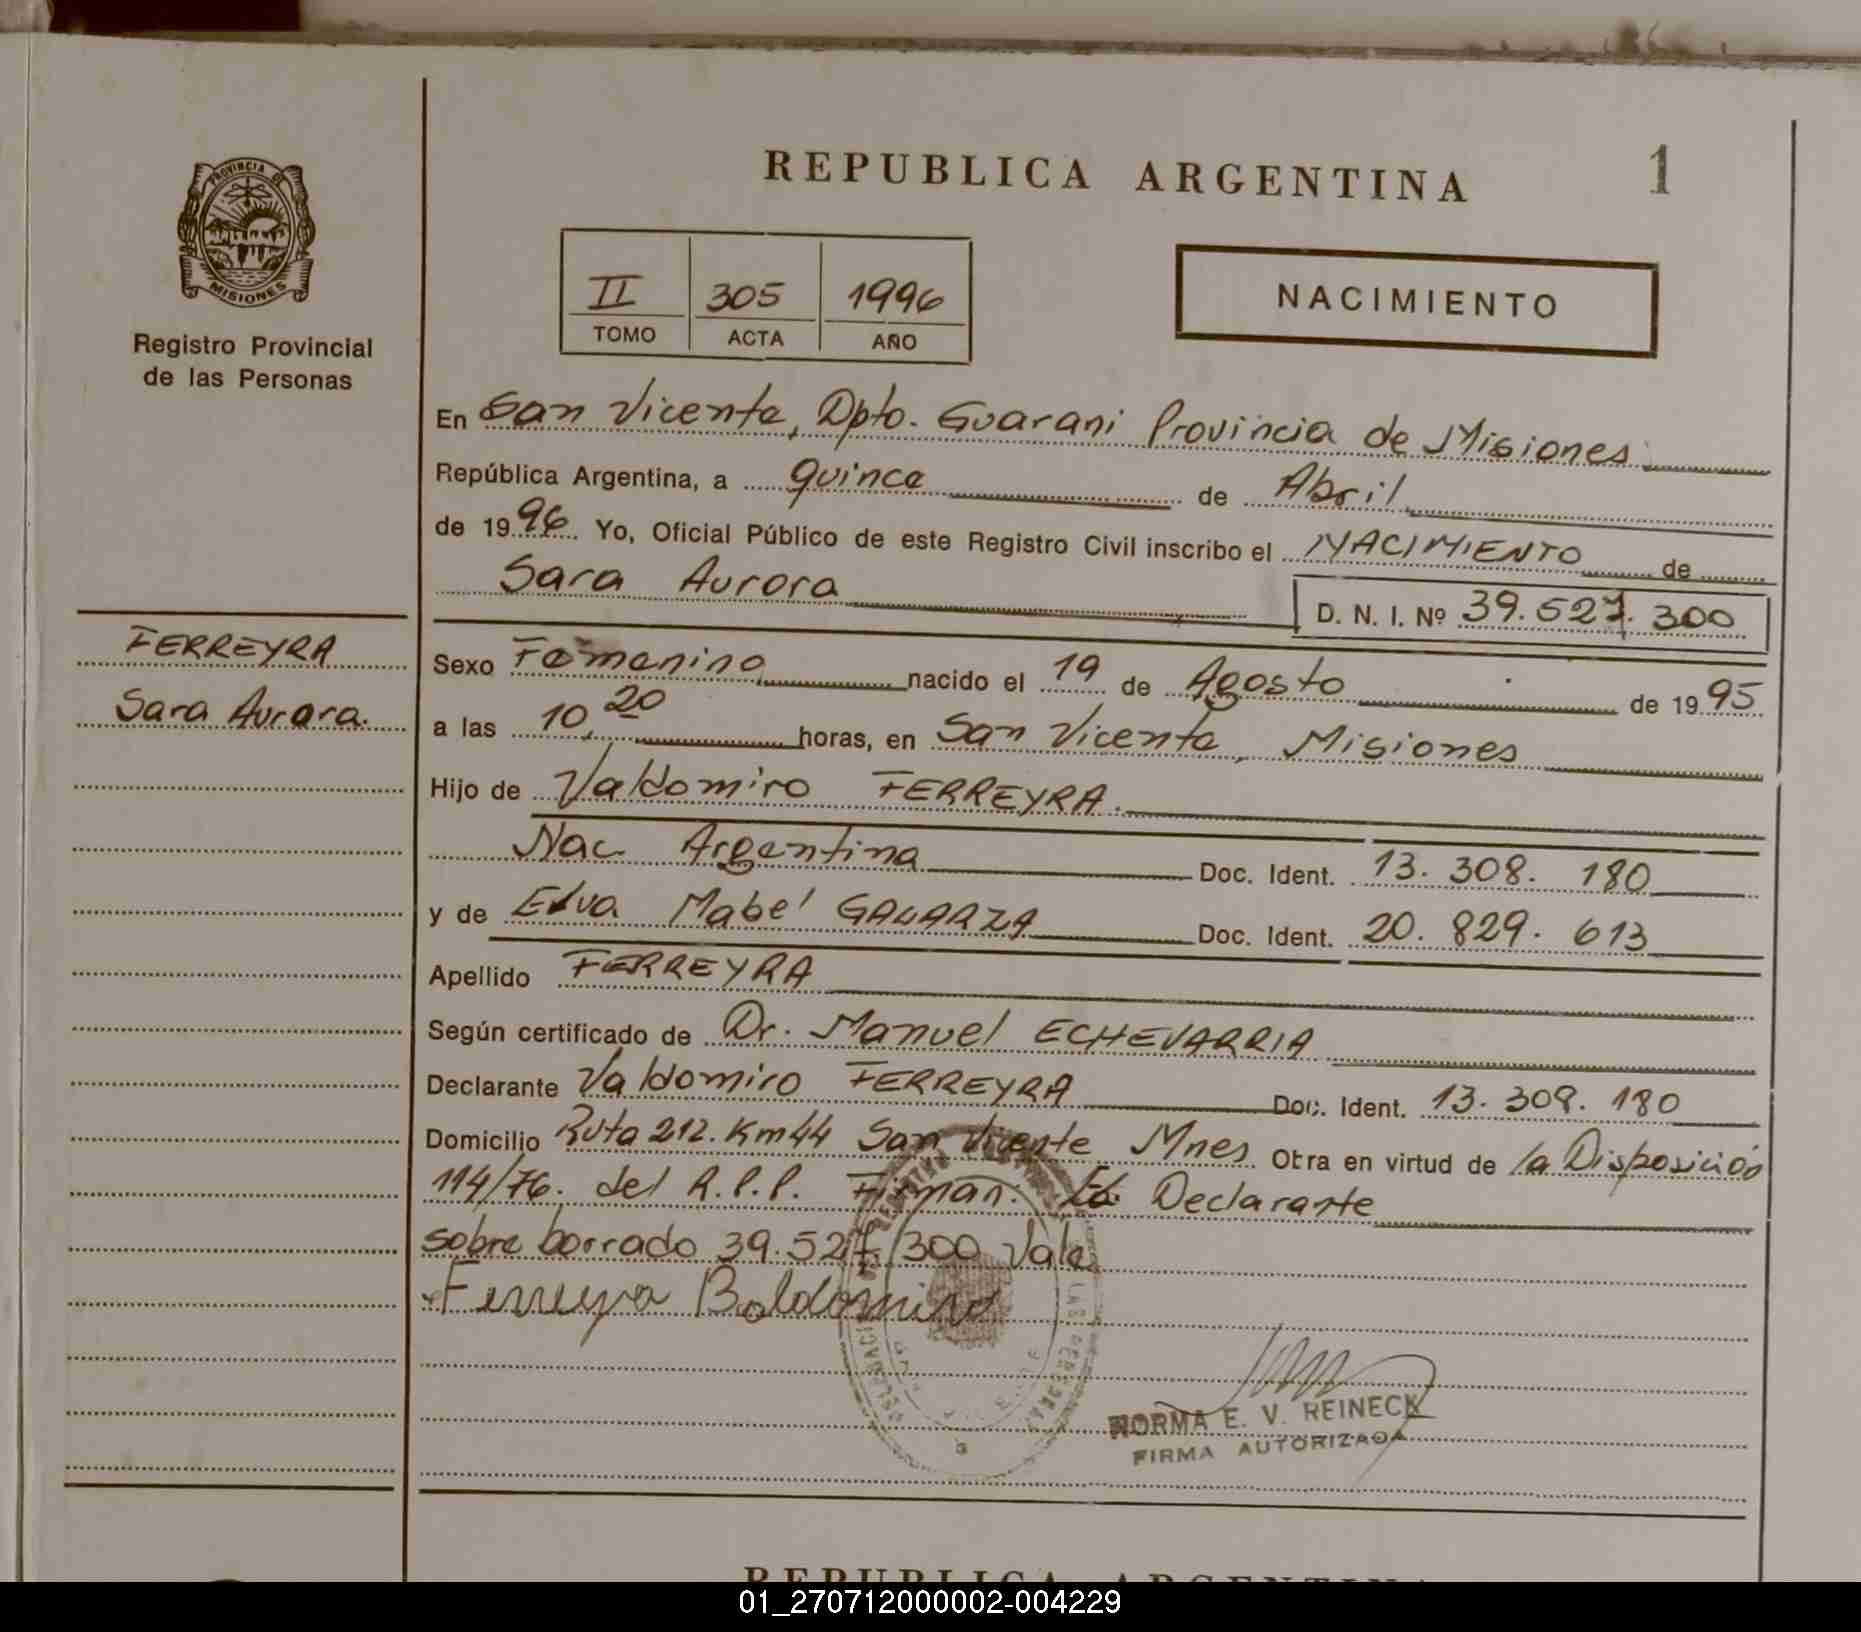 REPUBLICA ARGENTINA 1
PROVINCIA DE
MISIONES
Registro Provincial
de las Personas
II 305 1996
TOMO ACTA AÑO
NACIMIENTO
En San Vicente, Dpto. Guarani Provincia de Misiones
República Argentina, a quince de Abril
de 1996 Yo, Oficial Público de este Registro Civil inscribo el NACIMIENTO de
Sara Aurora
D. N. I. Nº 39.527.300
FERREYRA
Sara Aurora.
Sexo Femenino nacido el 19 de Agosto de 1995
a las 10,20 horas, en San Vicente, Misiones
Hijo de Valdomiro FERREYRA.
Nac Argentina Doc. Ident. 13. 308. 180
y de Elva Mabel GALARZA Doc. Ident. 20. 829. 613
Apellido FERREYRA
Según certificado de Dr. Manuel ECHEVARRIA
Declarante Valdomiro FERREYRA Doc. Ident. 13. 308. 180
Domicilio Ruta 212. Km 44 San Vicente Mnes Otra en virtud de la Disposición
114/76. del R.P.P. Firman: El Declarante
sobre borrado 39.527.300 Vale
Ferreyra Boldomiro
NORMA E. V. REINECK
FIRMA AUTORIZADA
REPUBLICA ARGENTINA
01_270712000002-004229